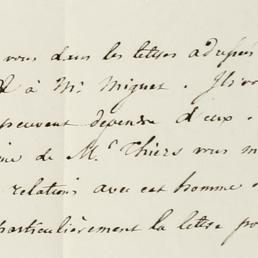 vous dans les lettres adressé
à Mr. Mignet. Il n'o
peuvent dépendre d'eux.
de Mr. Thiers vous m
relations avec cet homme
particulièrement la lettre po